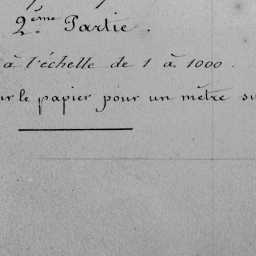 2.ème Partie.
à l'échelle de 1 à 1000.
le papier pour un mètre